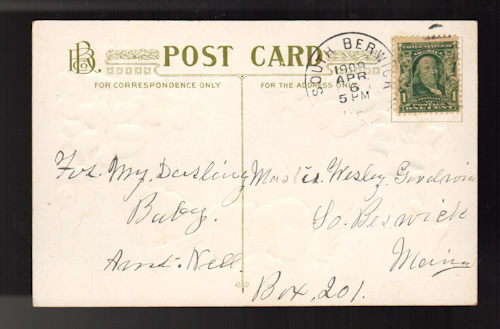 BRC
POST CARD
FOR CORRESPONDENCE ONLY
FOR THE ADDRESS ONLY
SOUTH BERWICK
1909
APR
6
5 PM
1
ONE CENT
For My Darling
Baby.
Aunt. Nell.
Master. Wesley. Goodwin
So. Berwick
Maine
Box, 201.